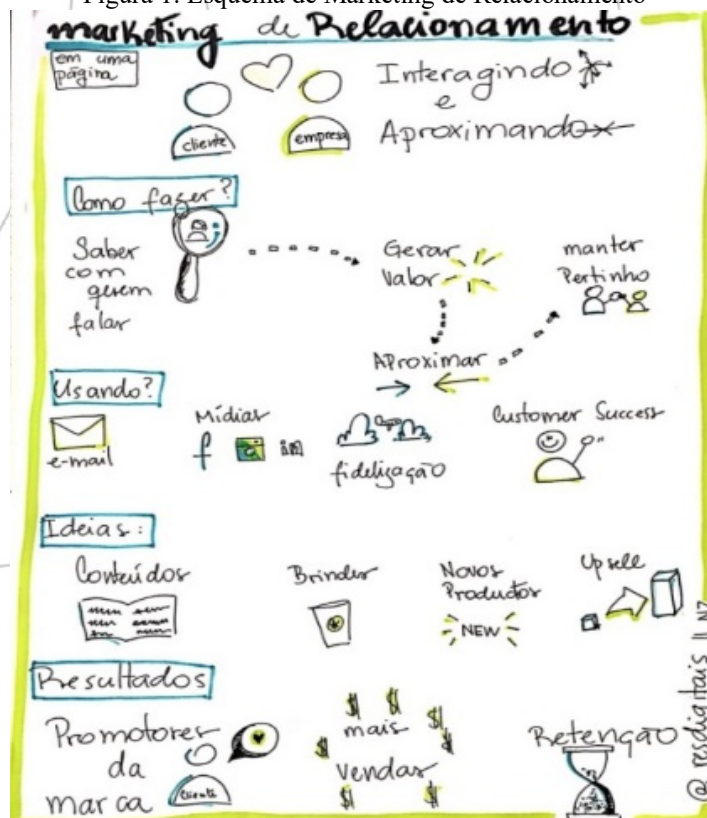 Figura 1: Esquema de Marketing de Relacionamento
marketing de Relacionamento
em uma
página
Interagindo
e
Aproximando
cliente
empresa
Como fazer?
Saber
com
quem
falar
Gerar
Valor
manter
Pertinho
Aproximar
Usando?
e-mail
Mídias
f in
fidelização
Customer Success
Ideias:
Conteúdos
Brindes
Novos
Productos
NEW
Upsell
Resultados
Promotores
da
marca
cliente
$ $ $ $ $
mais
vendas
$ $
Retenção
@resdigitais || NZ